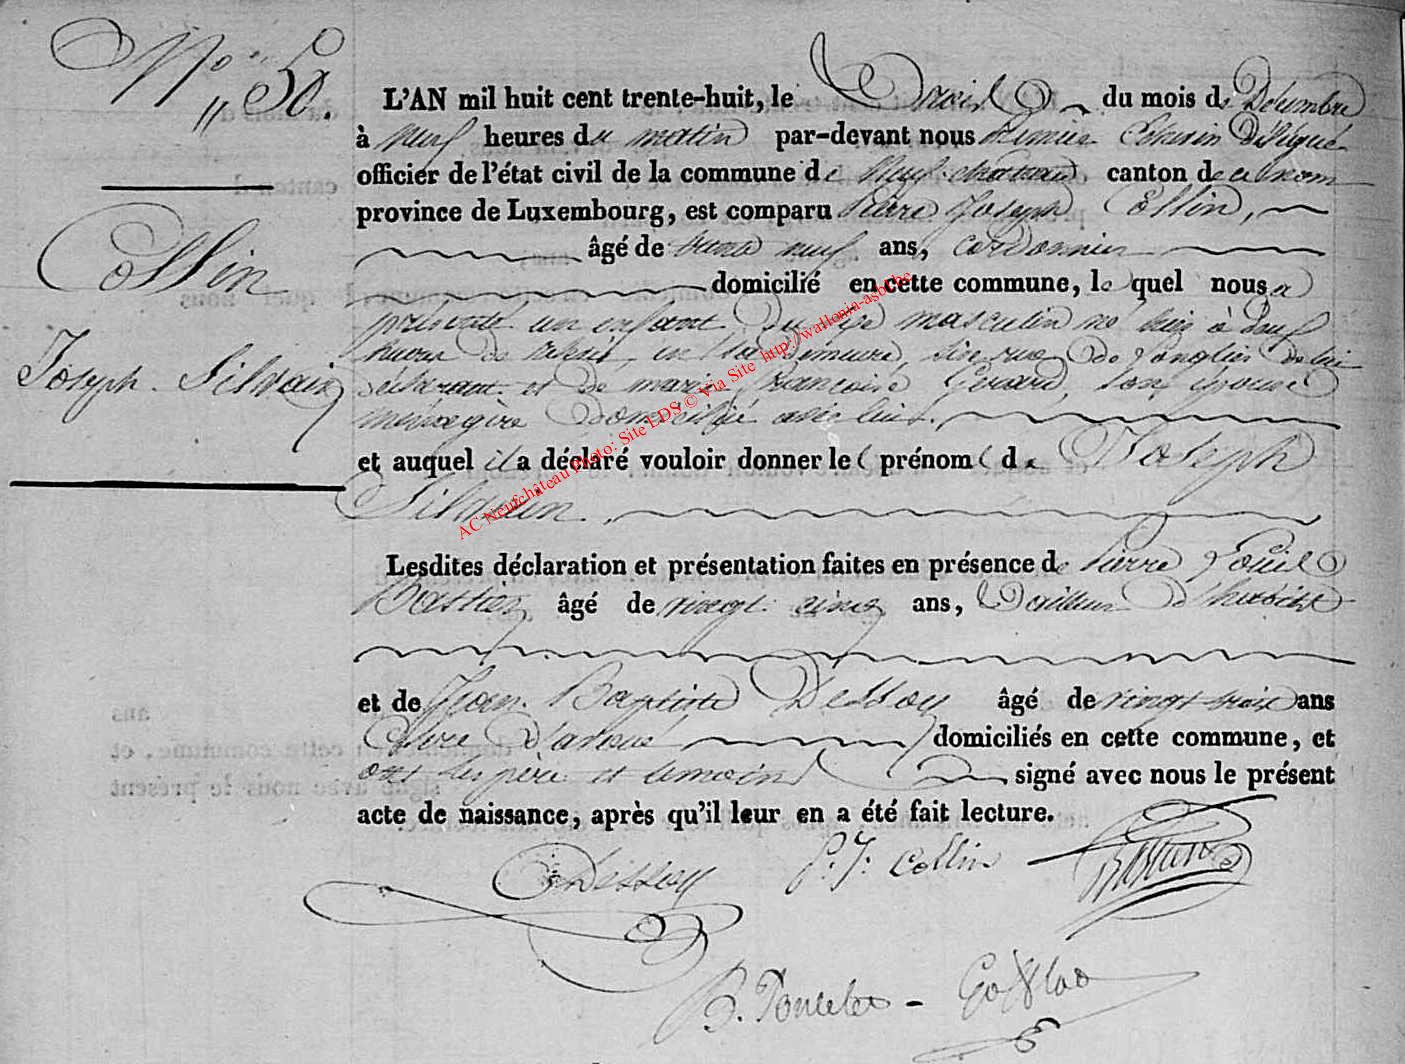 N° 50.
L'AN mil huit cent trente-huit, le Trois du mois de Décembre
à neuf heures du matin par-devant nous Premier Echevin Délégué
officier de l'état civil de la commune de Neufchateau canton de ce nom
province de Luxembourg, est comparu Pierre Joseph Collin,
âgé de trente neuf ans, cordonnier
domicilié en cette commune, le quel nous a
présenté un enfant du sexe masculin né hier à neuf
heures de relevé en sa demeure, sise rue de l'anglée de lui
déclarant et de marie Françoise Gerard, son épouse
menagère domiciliée avec lui.
et auquel il a déclaré vouloir donner le( prénom( de Joseph
Silvain.
Collin
Joseph Silvain
Lesdites déclaration et présentation faites en présence de Pierre Louis
Bastien âgé de vingt cinq ans, Tailleur d'habits
et de Jean Baptiste Dessoy âgé de vingt trois ans
domiciliés en cette commune, et
ont les père et temoins signé avec nous le présent
acte de naissance, après qu'il leur en a été fait lecture.
Dessoy P. J. Collin Bastien
B. Poncelet -
AC Neufchâteau Photo: Site LDS © Via Site http://wallonia-asbl.be